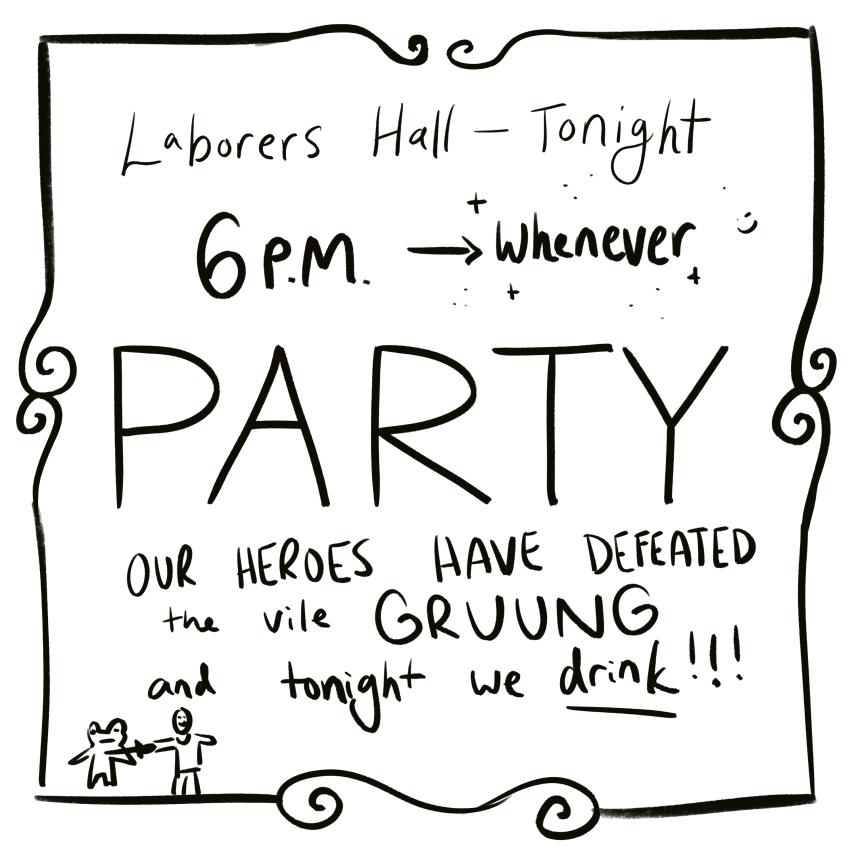 Laborers Hall — Tonight
6 P.M. → Whenever
PARTY
OUR HEROES HAVE DEFEATED
the vile GRUUNG
and tonight we drink!!!